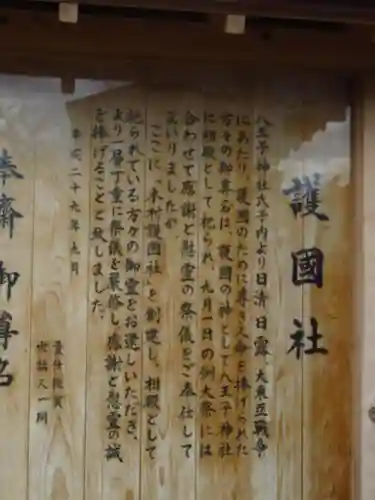 護國社
八王子神社氏子内より日清、日露、大東亜戦争
にあたり、護國のために尊き命を捧げられた
方々の御尊名は、護國の神として八王子神社
に相殿として祀られ、九月一日の例大祭には
合わせて感謝と慰霊の祭儀をご奉仕して
まいりましたが、
ここに、「本村護国社」を創建し、相殿として
祀られている方々の御霊をお遷しいただき、
より一層丁重に祭儀を厳修し感謝と慰霊の誠
を捧げることと致しました。
平成二十九年九月
責任役員
世話人一同
奉斎御尊名